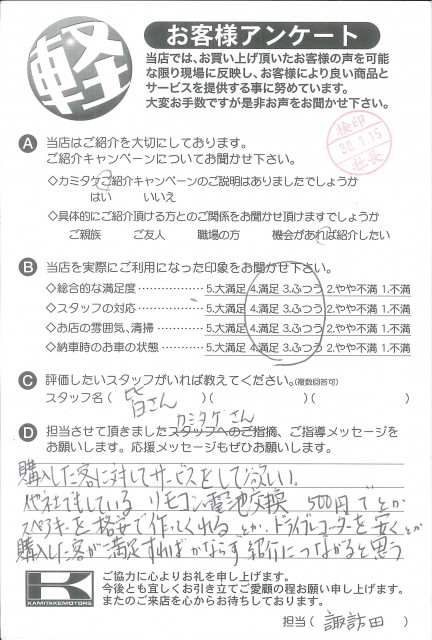 軽
お客様アンケート
当店では、お買い上げ頂いたお客様の声を可能
な限り現場に反映し、お客様により良い商品と
サービスを提供する事に努めています。
大変お手数ですが是非お声をお聞かせ下さい。
検印
30.1.15
社長
A 当店はご紹介を大切にしております。
ご紹介キャンペーンについてお聞かせ下さい。
◇カミタケご紹介キャンペーンのご説明はありましたでしょうか
はい いいえ
◇具体的にご紹介頂ける方とのご関係をお聞かせ頂けますでしょうか
ご親族 ご友人 職場の方 機会があれば紹介したい
B 当店を実際にご利用になった印象をお聞かせ下さい。
◇総合的な満足度……………5.大満足 4.満足 3.ふつう 2.やや不満 1.不満
◇スタッフの対応……………5.大満足 4.満足 3.ふつう 2.やや不満 1.不満
◇お店の雰囲気、清掃………5.大満足 4.満足 3.ふつう 2.やや不満 1.不満
◇納車時のお車の状態………5.大満足 4.満足 3.ふつう 2.やや不満 1.不満
C 評価したいスタッフがいれば教えてください。(複数回答可)
スタッフ名( 皆さん )( )( )
カミタケさん
D 担当させて頂きましたスタッフへのご指摘、ご指導メッセージを
お願いします。応援メッセージもぜひお願いします。
購入した客に対してサービスをして欲しい。
他社でもしている リモコン電池交換 500円でとか
スペアキーを格安で作ってくれるとか、ドライブレコーダーを安くとか
購入した客が満足すればかならず紹介につながると思う
KAMITAKEMOTORS
ご協力に心よりお礼を申し上げます。
今後とも宜しくお引き立てご愛顧の程お願い申し上げます。
またのご来店を心からお待ちしております。
担当( 諏訪田 )